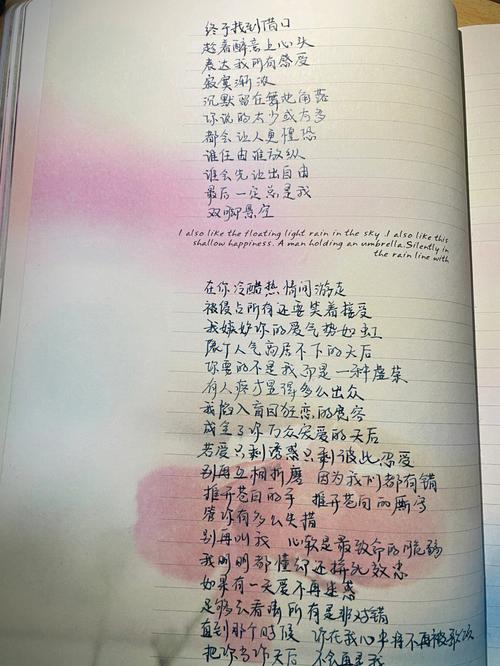 终于找到借口
趁着醉意上心头
表达我所有感受
寂寞渐浓
沉默留在舞池角落
你说的太少或太多
都会让人更惶恐
谁任由谁放纵
谁会先让出自由
最后一定总是我
双脚悬空
I also like the floating light rain in the sky .I also like this
shallow happiness. A man holding an umbrella.Silently in
the rain line with
在你冷酷热情间游走
被侵占所有还要笑着接受
我嫉妒你的爱气势如虹
像个人气高居不下的天后
你要的不是我却是一种虚荣
有人疼才显得多么出众
我陷入盲目狂恋的宽容
成全了你万众宠爱的天后
若爱只剩诱惑只剩彼此忍受
别再互相折磨 因为我们都有错
推开苍白的手 推开苍白的厮守
管你有多么失措
别再叫我 心软是最致命的脆弱
我明明都懂却还拼死效忠
如果有一天爱不再迷惑
足够去看清所有是非对错
直到那个时候 你在我心中将不再被歌颂
把你当作天后 不会再是我